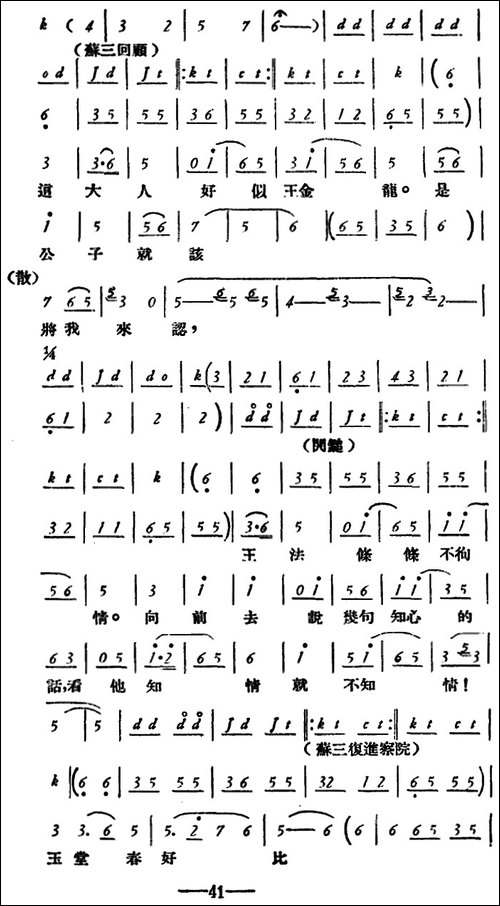 k ( 4 | 3 2 | 5 7 | 6—— ) | d d | d d | d d | d d |
(蘇三回顧)
o d | J d | J t ‖: k t | c t :‖ k t | c t | k | ( 6 |
6 | 3 5 | 5 5 | 3 6 | 5 5 | 3 2 | 1 2 | 6 5 | 5 5 ) |
3 | 3·6 | 5 | 0 i | 6 5 | 3 i | 5 6 | 5 | 5 6 |
這 大 人 好 似 王金 龍。是
i | 5 | 5 6 | 7 | 5 | 6 ‖ ( 6 5 | 3 5 | 6 ) |
公 子 就 該
(散)
7 6 5 | 5 3 0 | 5—— 6 5 6 5 | 4—— 5 3—— | 5 2 3 2—— |
將我 來 認，
¼
d d | J d | d o | k ( 3 | 2 1 | 6 1 | 2 3 | 4 3 | 2 1 |
6 1 | 2 | 2 | 2 ) | d d | J d | J t ‖: k t | c t :‖
k t | c t | k | ( 6 | 6 | 3 5 | 5 5 | 3 6 | 5 5 |
3 2 | 1 1 | 6 5 | 5 5 ) ‖ 3·6 | 5 | 0 i | 6 5 | i i |
王 法 條 條 不徇
5 6 | 5 | 3 | i | i | 0 i | 5 6 | i i | 3 5 |
情。向 前 去 說 幾句 知心 的
6 3 | 0 5 | i·2 | 6 5 | 6 | i | 5 i | 6 5 | 3 5 3 |
話，看 他 知 情 就 不 知 情！
5 | 5 | d d d d | J d J t ‖: k t c t :‖ k t c t |
(蘇三復進察院)
k ‖ ( 6 6 | 3 5 5 5 | 3 6 5 5 | 3 2 1 2 | 6 5 5 5 ) |
3 3. 6 5 | 5. 2 7 6 | 5— 6 ( 6 | 6 6 5 3 5 |
玉 堂 春 好 比
—41—